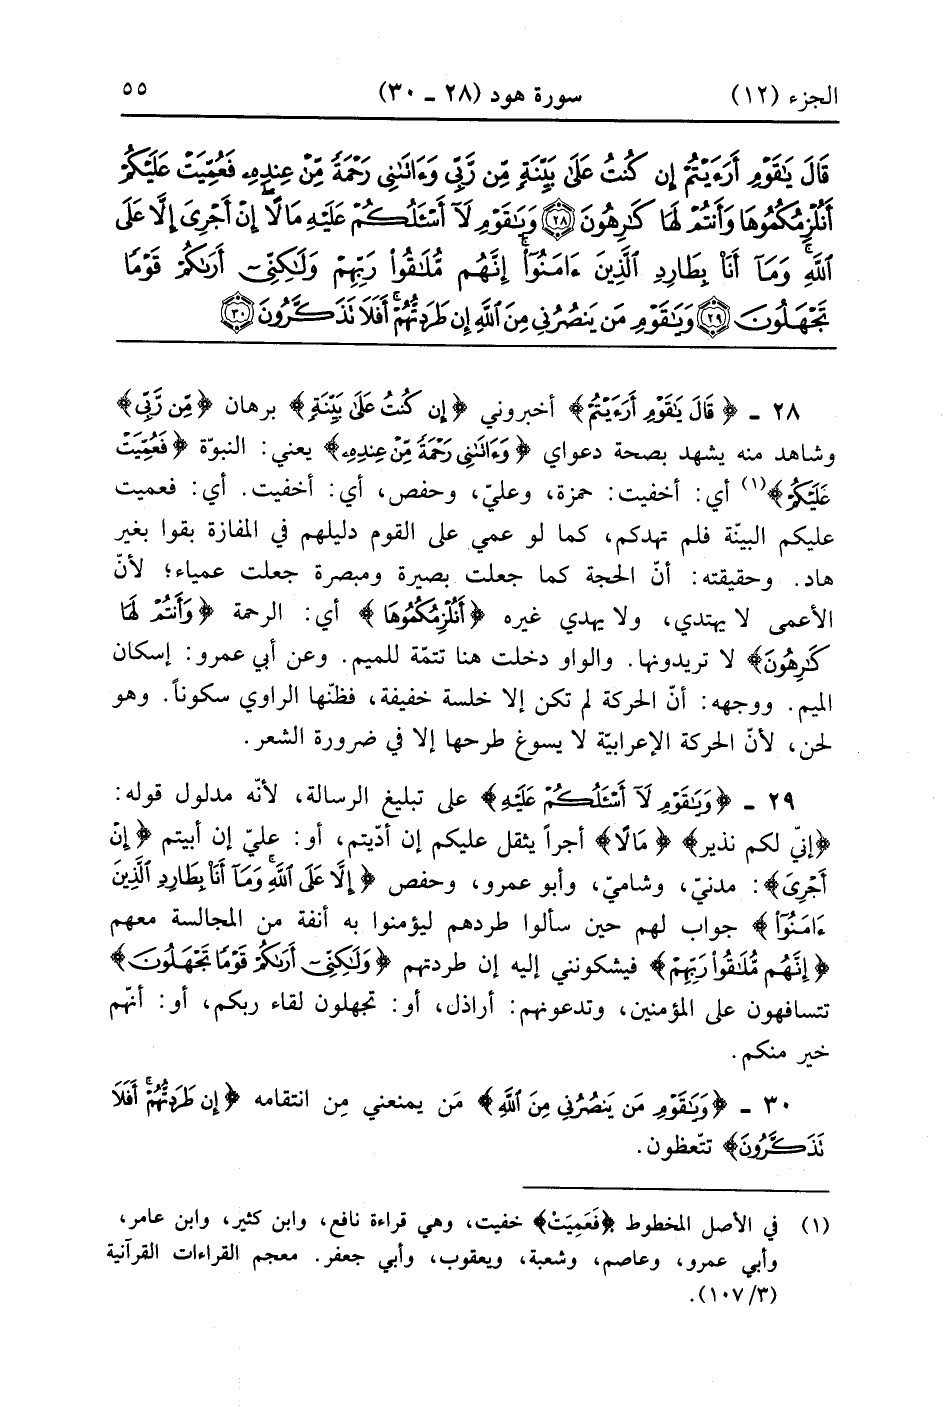 الجزء (١٢) سورة هود (٢٨ - ٣٠) ٥٥
قَالَ يَٰقَوْمِ أَرَءَيْتُمْ إِن كُنتُ عَلَىٰ بَيِّنَةٍ مِّن رَّبِّى وَءَاتَىٰنِى رَحْمَةً مِّنْ عِندِهِۦ فَعُمِّيَتْ عَلَيْكُمْ
أَنُلْزِمُكُمُوهَا وَأَنتُمْ لَهَا كَٰرِهُونَ ٢٨ وَيَٰقَوْمِ لَآ أَسْـَٔلُكُمْ عَلَيْهِ مَالًا إِنْ أَجْرِىَ إِلَّا عَلَى
ٱللَّهِ وَمَآ أَنَا۠ بِطَارِدِ ٱلَّذِينَ ءَامَنُوٓا۟ إِنَّهُم مُّلَٰقُوا۟ رَبِّهِمْ وَلَٰكِنِّىٓ أَرَىٰكُمْ قَوْمًا
تَجْهَلُونَ ٢٩ وَيَٰقَوْمِ مَن يَنصُرُنِى مِنَ ٱللَّهِ إِن طَرَدتُّهُمْ أَفَلَا تَذَكَّرُونَ ٣٠
٢٨ - ﴿قَالَ يَٰقَوْمِ أَرَءَيْتُمْ﴾ أخبروني ﴿إِن كُنتُ عَلَىٰ بَيِّنَةٍ﴾ برهان ﴿مِّن رَّبِّى﴾
وشاهد منه يشهد بصحة دعواي ﴿وَءَاتَىٰنِى رَحْمَةً مِّنْ عِندِهِۦ﴾ يعني: النبوّة ﴿فَعُمِّيَتْ
عَلَيْكُمْ﴾(١) أي: أخفيت: حمزة، وعليّ، وحفص، أي: أخفيت. أي: فعميت
عليكم البيّنة فلم تهدكم، كما لو عمي على القوم دليلهم في المفازة بقوا بغير
هاد. وحقيقته: أنّ الحجة كما جعلت بصيرة ومبصرة جعلت عمياء؛ لأنّ
الأعمى لا يهتدي، ولا يهدي غيره ﴿أَنُلْزِمُكُمُوهَا﴾ أي: الرحمة ﴿وَأَنتُمْ لَهَا
كَٰرِهُونَ﴾ لا تريدونها. والواو دخلت هنا تتمّة للميم. وعن أبي عمرو: إسكان
الميم. ووجهه: أنّ الحركة لم تكن إلا خلسة خفيفة، فظنّها الراوي سكوناً. وهو
لحن، لأنّ الحركة الإعرابيّة لا يسوغ طرحها إلا في ضرورة الشعر.
٢٩ - ﴿وَيَٰقَوْمِ لَآ أَسْـَٔلُكُمْ عَلَيْهِ﴾ على تبليغ الرسالة، لأنّه مدلول قوله:
﴿إنّي لكم نذير﴾ ﴿مَالًا﴾ أجراً يثقل عليكم إن أدّيتم، أو: عليّ إن أبيتم ﴿إِنْ
أَجْرِىَ﴾: مدنيّ، وشاميّ، وأبو عمرو، وحفص ﴿إِلَّا عَلَى ٱللَّهِ وَمَآ أَنَا۠ بِطَارِدِ ٱلَّذِينَ
ءَامَنُوٓا۟﴾ جواب لهم حين سألوا طردهم ليؤمنوا به أنفة من المجالسة معهم
﴿إِنَّهُم مُّلَٰقُوا۟ رَبِّهِمْ﴾ فيشكونني إليه إن طردتهم ﴿وَلَٰكِنِّىٓ أَرَىٰكُمْ قَوْمًا تَجْهَلُونَ﴾
تتسافهون على المؤمنين، وتدعونهم: أراذل، أو: تجهلون لقاء ربكم، أو: أنّهم
خير منكم.
٣٠ - ﴿وَيَٰقَوْمِ مَن يَنصُرُنِى مِنَ ٱللَّهِ﴾ مَن يمنعني مِن انتقامه ﴿إِن طَرَدتُّهُمْ أَفَلَا
تَذَكَّرُونَ﴾ تتّعظون.
(١) في الأصل المخطوط ﴿فَعَمِيَتْ﴾ خفيت، وهي قراءة نافع، وابن كثير، وابن عامر،
وأبي عمرو، وعاصم، وشعبة، ويعقوب، وأبي جعفر. معجم القراءات القرآنية
(٣/ ١٠٧).